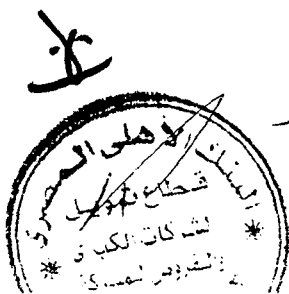 البنك الأهلى المصرى
قطاع تمويل
الشركات الكبرى
والقروض المشتركة